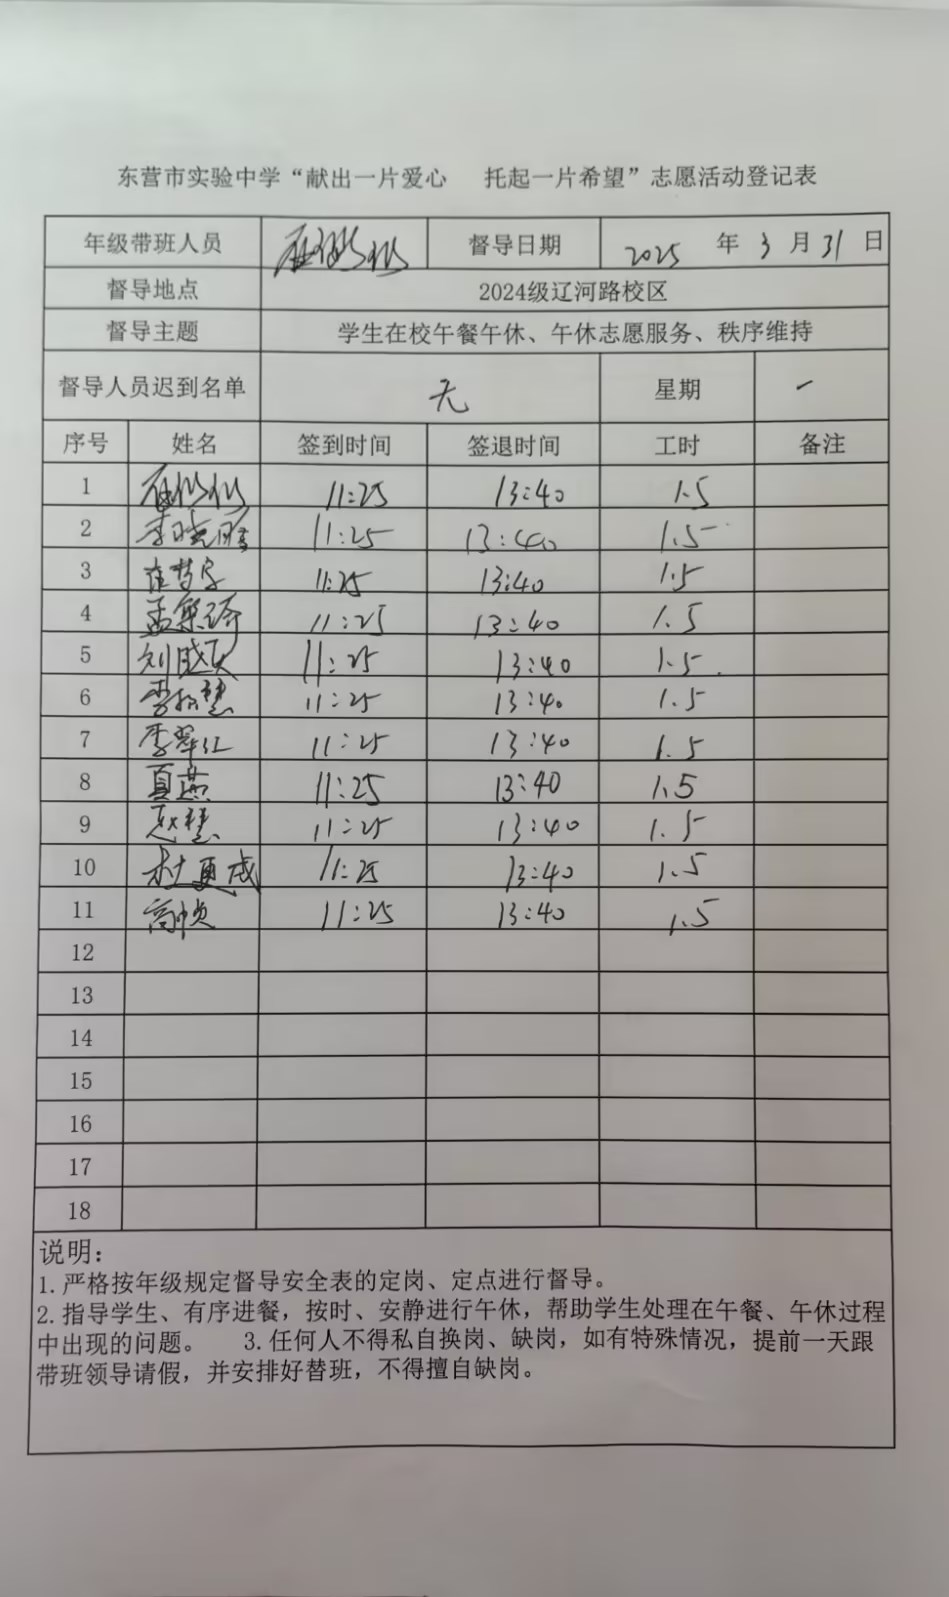 东营市实验中学“献出一片爱心 托起一片希望”志愿活动登记表
年级带班人员 督导日期 2025 年 3 月 31 日
督导地点 2024级辽河路校区
督导主题 学生在校午餐午休、午休志愿服务、秩序维持
督导人员迟到名单 无 星期 一
序号 姓名 签到时间 签退时间 工时 备注
1 11:25 13:40 1.5
2 李晓晴 11:25 13:40 1.5
3 崔梦宇 11:25 13:40 1.5
4 孟繁琦 11:25 13:40 1.5
5 11:25 13:40 1.5
6 11:25 13:40 1.5
7 季翠红 11:25 13:40 1.5
8 夏燕 11:25 13:40 1.5
9 赵慧 11:25 13:40 1.5
10 杜更成 11:25 13:40 1.5
11 11:25 13:40 1.5
12
13
14
15
16
17
18
说明：
1.严格按年级规定督导安全表的定岗、定点进行督导。
2.指导学生、有序进餐，按时、安静进行午休，帮助学生处理在午餐、午休过程
中出现的问题。 3.任何人不得私自换岗、缺岗，如有特殊情况，提前一天跟
带班领导请假，并安排好替班，不得擅自缺岗。